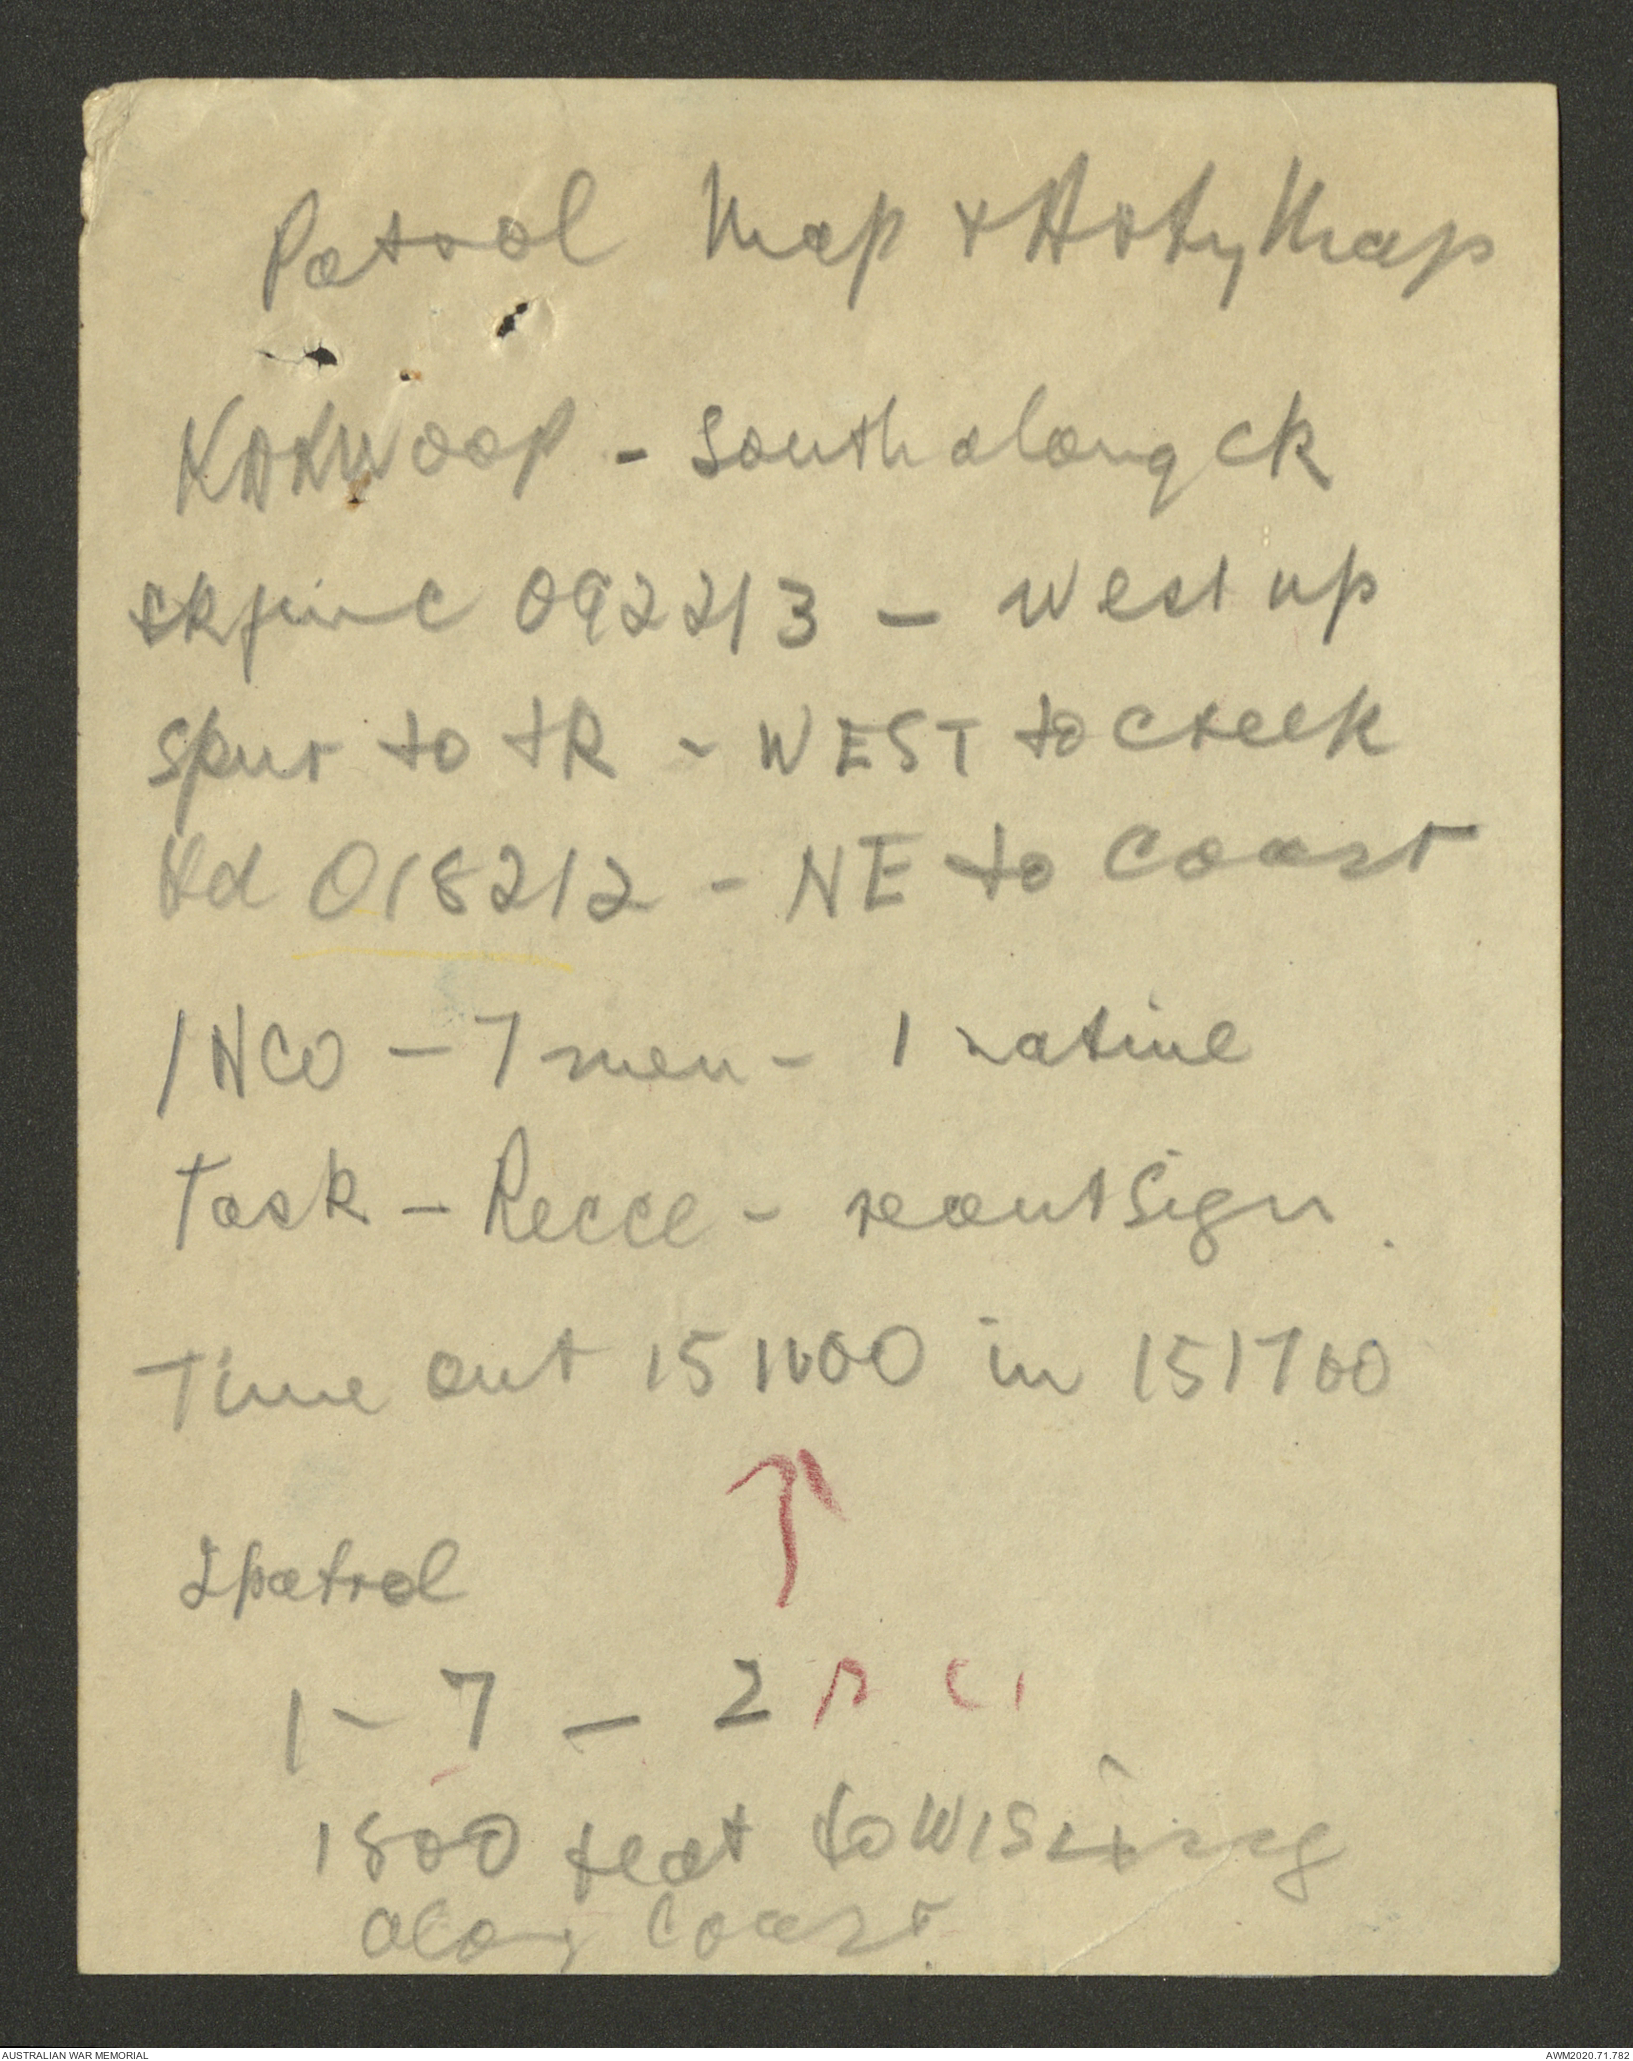 Patrol Map + Arty Map
KARWOOP - South along ck
ck junc 092213 - West up
Spur to TR - WEST to creek
Hd 018212 - NE to Coast
1 NCO - 7 men - 1 native
Task - Recce - recent Sign.
Time out 151100 in 151700
2 patrol
1 - 7 - 2
1800 feet to WISLING
along Coast.
AUSTRALIAN WAR MEMORIAL
AWM2020.71.782